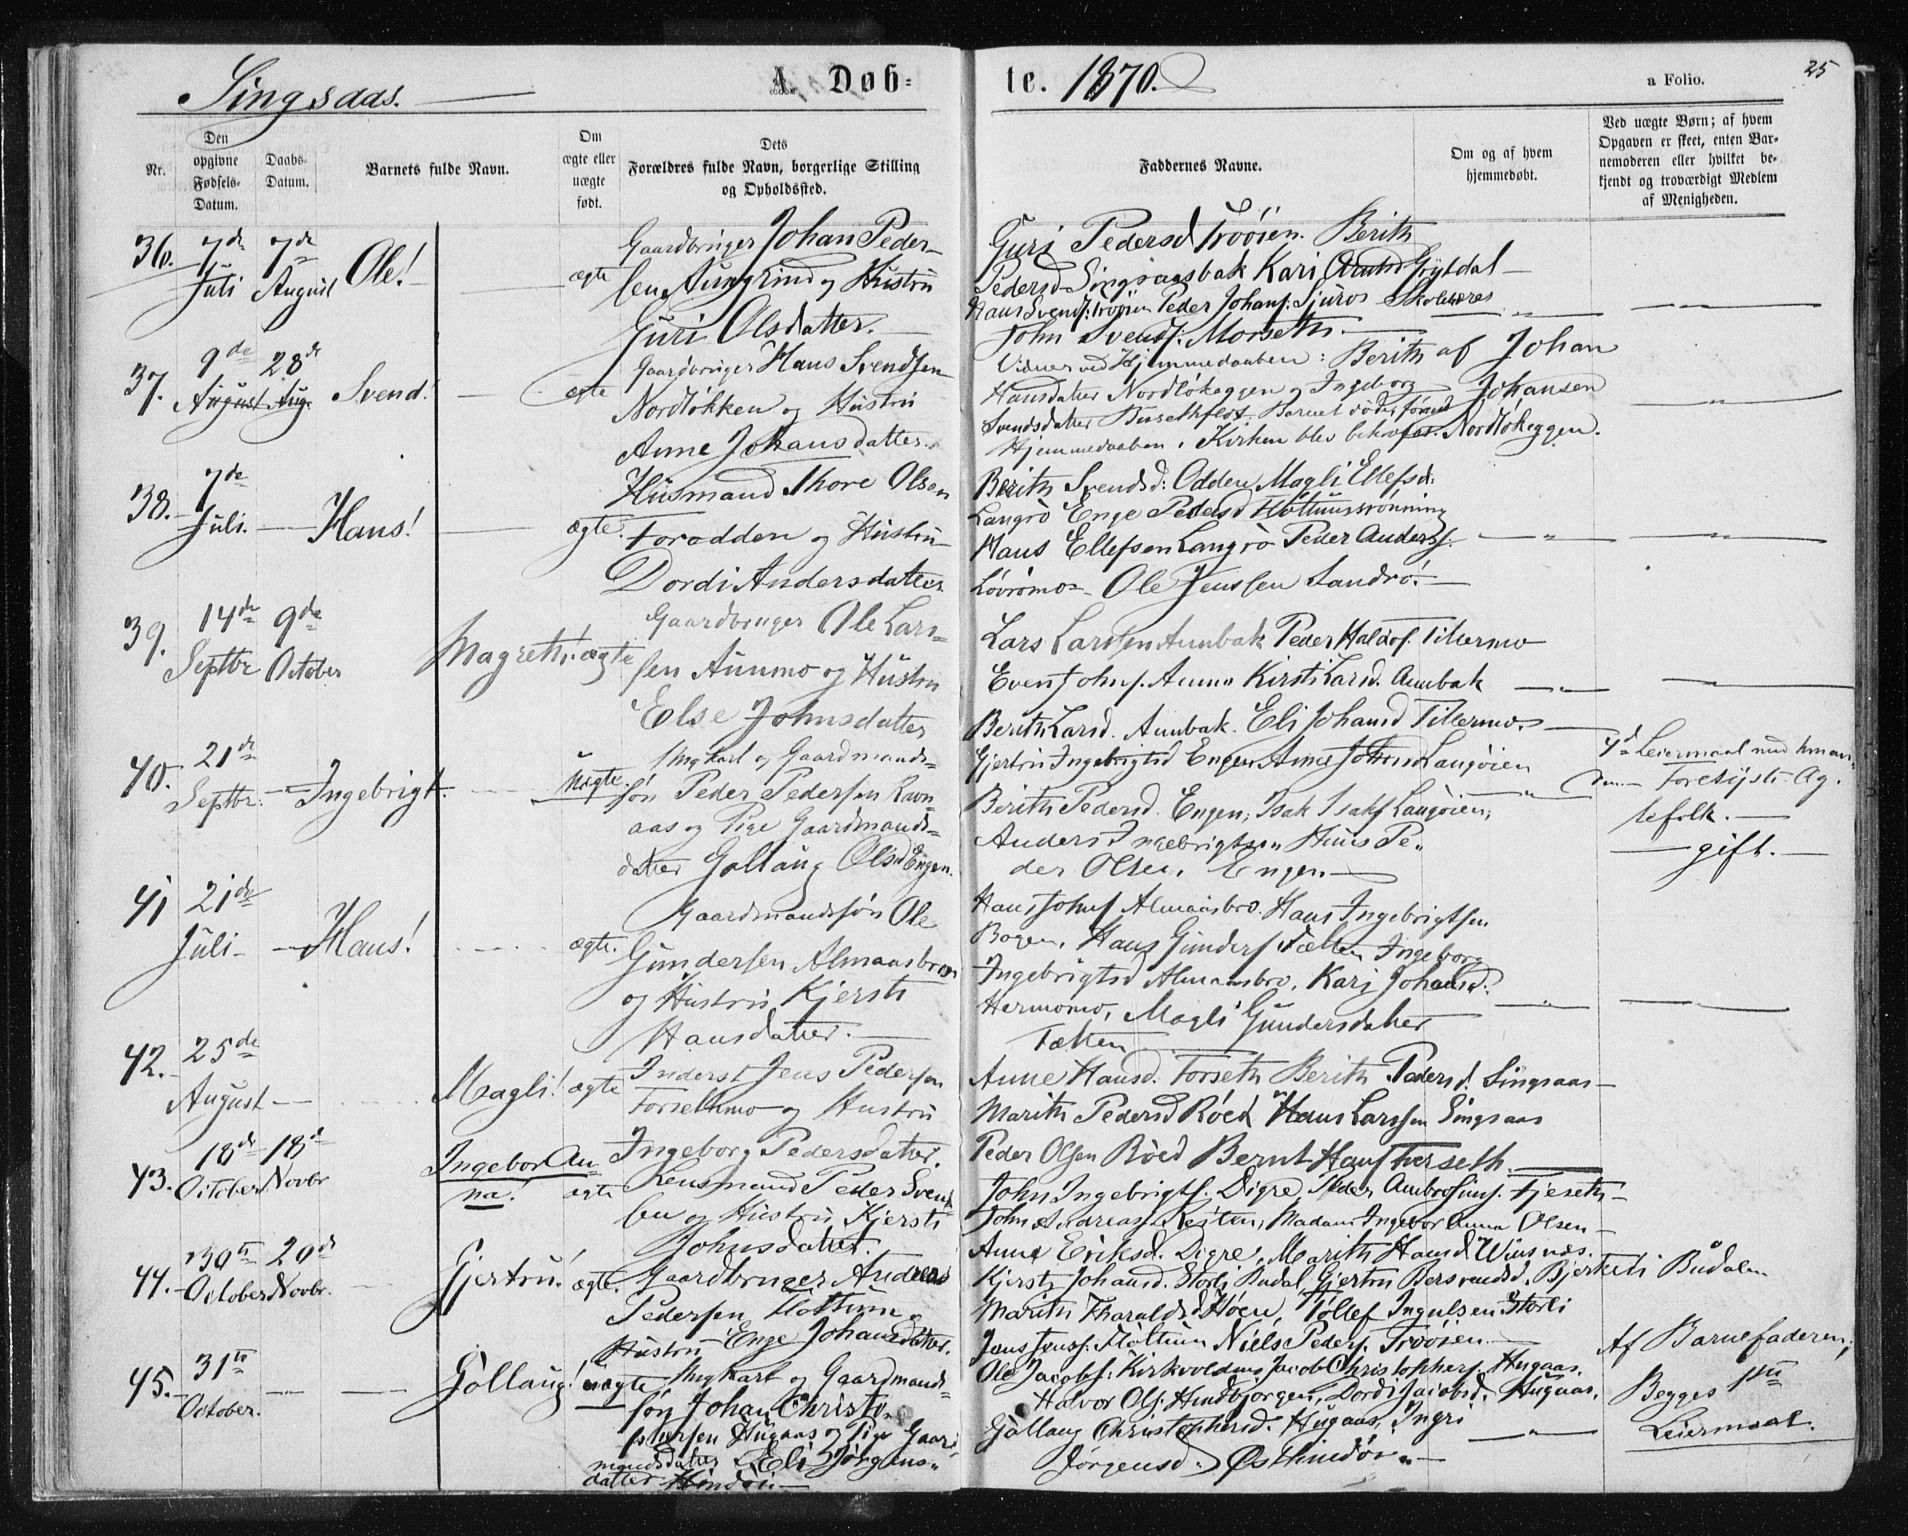 Singsaas.
A. Døb-
te. 1870.
a Folio.
25
Nr.
Den opgivne Fødsels-Datum.
Daabs-Datum.
Barnets fulde Navn.
Om ægte eller uægte født.
Dets Forældres fulde Navn, borgerlige Stilling og Opholdssted.
Faddernes Navne.
Om og af hvem hjemmedøbt.
Ved uægte Børn; af hvem Opgaven er skeet, enten Barnemoderen eller hvilket bekjendt og troværdigt Medlem af Menigheden.
36. 7de Juli 7de August Ole! ægte
Gaardbruger Johan Peder-
sen og Hustru
Guri Olsdatter.
Guri Pedersd Trøøien. Berith
Pedersd Singsaasbak Kari Grytdal
Hans Svends: Trøøien Peder Johans: Sjuros
John Svends: Morseth.
37. 9de August 28de Aug. Svend! ægte
Gaardbruger Hans Svendsen
Nordløkken og Hustru
Anne Johansdatter.
Vidner ved Hjemmedaaben: Berith
Hansdatter Nordløkeggen og Ingeborg
Svendsdatter
Hjemmedaaben i Kirken blev
af Johan
Johansen
Nordløkeggen.
38. 7de Juli. Hans! ægte.
Husmand Thore Olsen
Forodden og Hustru
Dordi Andersdatter
Berith Svendsd: Odden Magli Ellefsd:
Langrø Enge Pedersd
Hans Ellefsen Langrø Peder Anders.
Løvrømo Ole Jenssen Sandrø.
39. 14de Septbr 9de October Magreth! ægte
Gaardbruger Ole Lars-
sen Aunmo og Hustru
Else Johnsdatter
Lars Larssen Aunbak Peder Haldos. Tillermo
Even Johns. Aunmo Kirsti Larsd. Aunbak
Berith Larsd. Aunbak. Eli Johansd Tillermo.
40. 21de Septbr. Ingebrigt. uægte.
Ungkarl og Gaardmands-
søn Peder Pedersen Ravn-
aas og Pige Gaardmands-
datter Gollaug Olsd Engen.
Gjertru Ingebrigtsd Engen Anne Johnsd Langøien
Berith Pedersd. Engen, Isak Isaks Langøien,
Anders Ingebrigtsen Huus Pe-
der Olsen. Engen.
Leiermaal med
tefolk.
gift.
41 21de Juli Hans! ægte.
Gaardmandssøn Ole
Gundersen Almaasbroen
og Hustru Kjersti
Hansdatter.
Hans Johns Almaasbro. Hans Ingebrigtsen
Bogen. Hans Gunders Tætten Ingeborg
Ingebrigtsd Almaasbro. Kari Johansd.
Hermomo, Magli Gundersdatter
Tætten
42. 25de August Magli! ægte
Inderst Jens Pedersen
Forsethmo og Hustru
Ingeborg Pedersdatter.
Anne Hansd. Forseth Berith Pedersd. Singsaas
Marith Pedersd Røed Hans Larssen Singsaas
Peder Olsen Røed Bernt Hans Forseth.
43. 18de October 18de Novbr Ingebor An-
na! ægte
Lensmand Peder Svend-
sen og Hustru Kjersti
Johnsdatter.
John Ingebrigts. Digre, Peder Ambrosius. Fjeseth
John Andreas. Madam Ingebor Anna Olsen
Anne Eriksd. Digre, Marith Hansd Winsnæs.
44. 30te October 20de Novbr. Gjertru! ægte.
Gaardbruger Andreas
Pedersen Flottum og
Hustru Enge Johansdatter.
Kjersti Johansd. Storli Budal, Gjertru Bersvendsd. Bjerkeli Budalen
Marith Haraldsd Høen, Tollef Ingulsen Storli
Jens Jens: Flottum Niels Peders. Trøøien
45. 31te October. Gollaug! uægte
Ungkarl og Gaardmands-
søn Johan Christo-
phersen Hugaas og Pige Gaard-
mandsdatter Eli Jørgens-
datter
Ole Jacobs: Kirkvolden, Jacob Christophers. Hugaas.
Halvor Ols. Hindbjorgen, Dordi Jacobsd. Hugaas.
Gollaug Christophersd. Hugaas, Ingri
Jørgensd.
Af Barnefaderen;
Begges
Leiermaal.